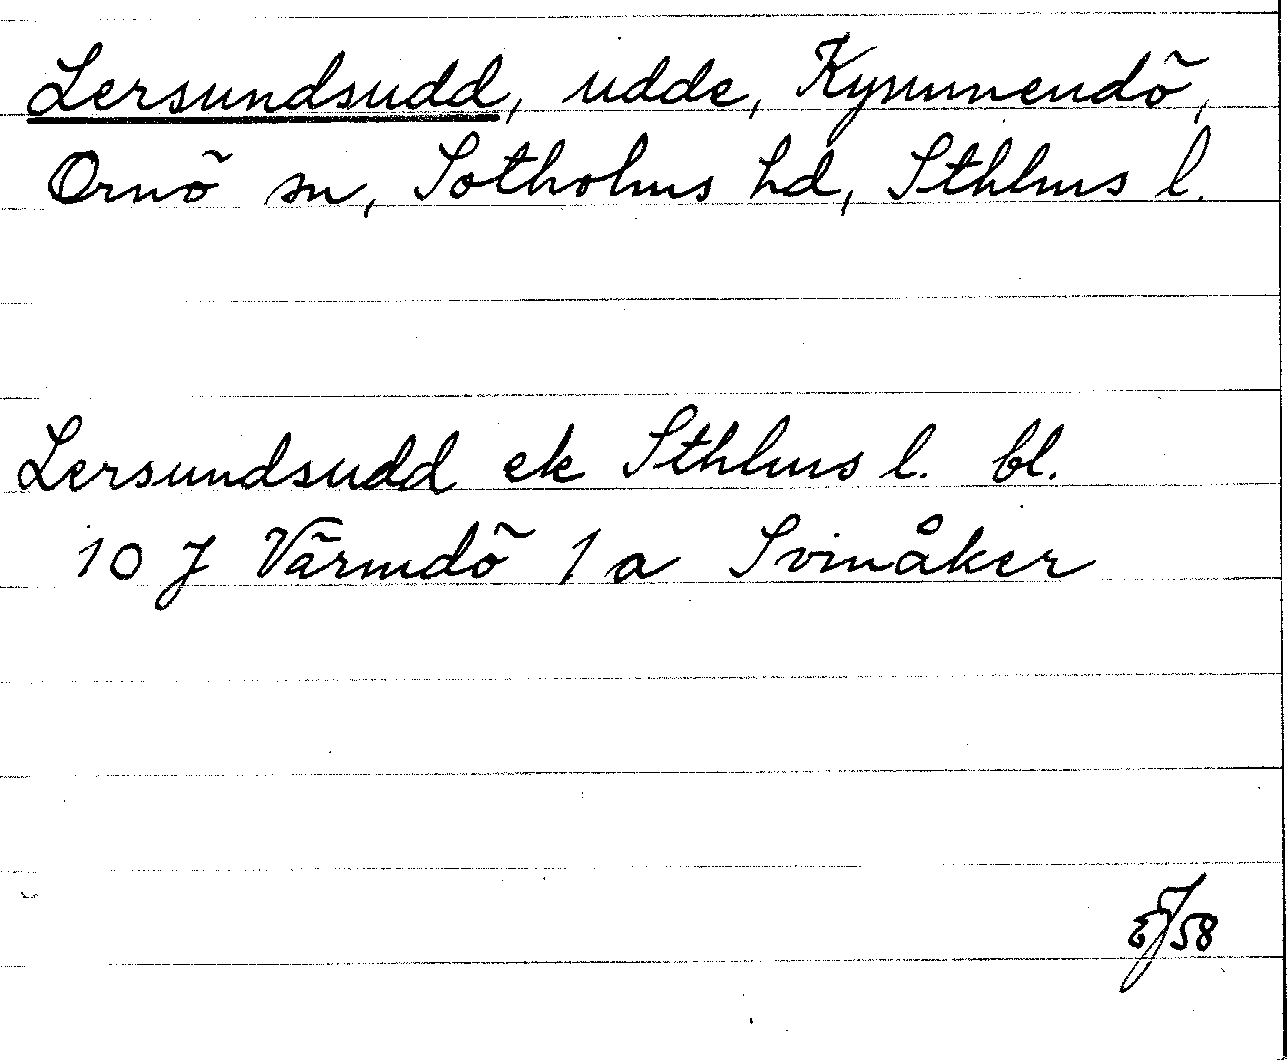 Lersundsudd, udde, Kymmendö,
Ornö sn, Sotholms hd, Sthlms l.
Lersundsudd ek Sthlms l. bl.
10 J Värmdö 1 a Svinåker
58